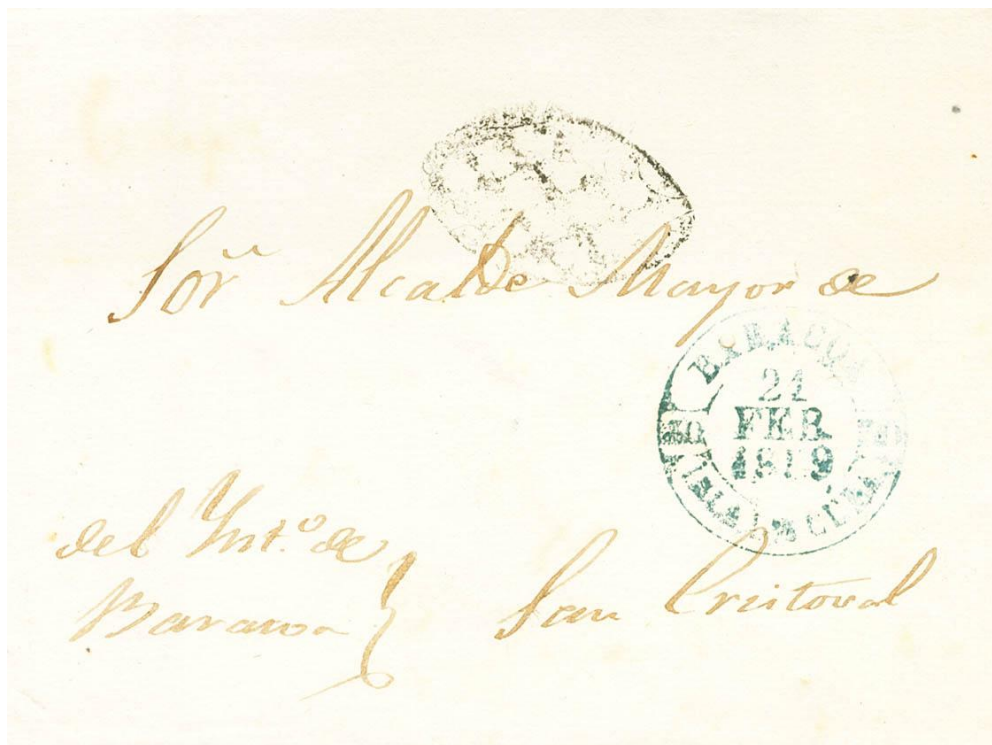 Sor Alcalde Mayor de
BARACOA
21
FEB
1859
ISLA DE CUBA
del Ynto. de
Baracoa
San Cristoval